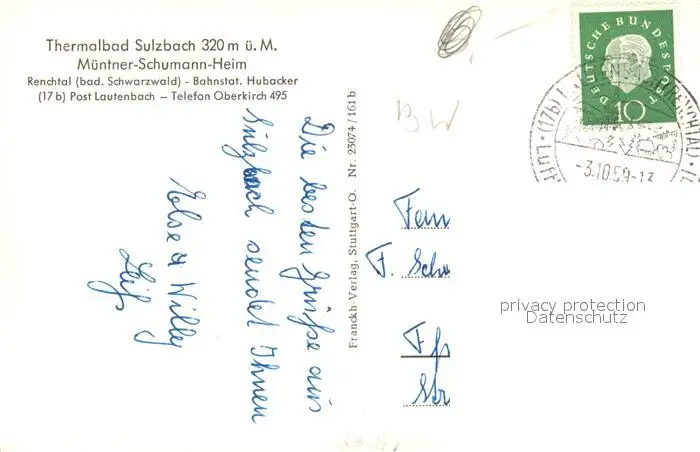 Thermalbad Sulzbach 320 m ü. M.
Müntner-Schumann-Heim
Renchtal (bad. Schwarzwald) - Bahnstat. Hubacker
(17 b) Post Lautenbach — Telefon Oberkirch 495
Die besten Grüße aus
Sulzbach sendet Ihnen
Else u Willy
Franckh-Verlag, Stuttgart-O. Nr. 23074/161 b
BW
F. Schu
DEUTSCHE BUNDESPOST
10
(17b)
(RENCHTAL)
LUFT
-3.10.59-12
privacy protection
Datenschutz